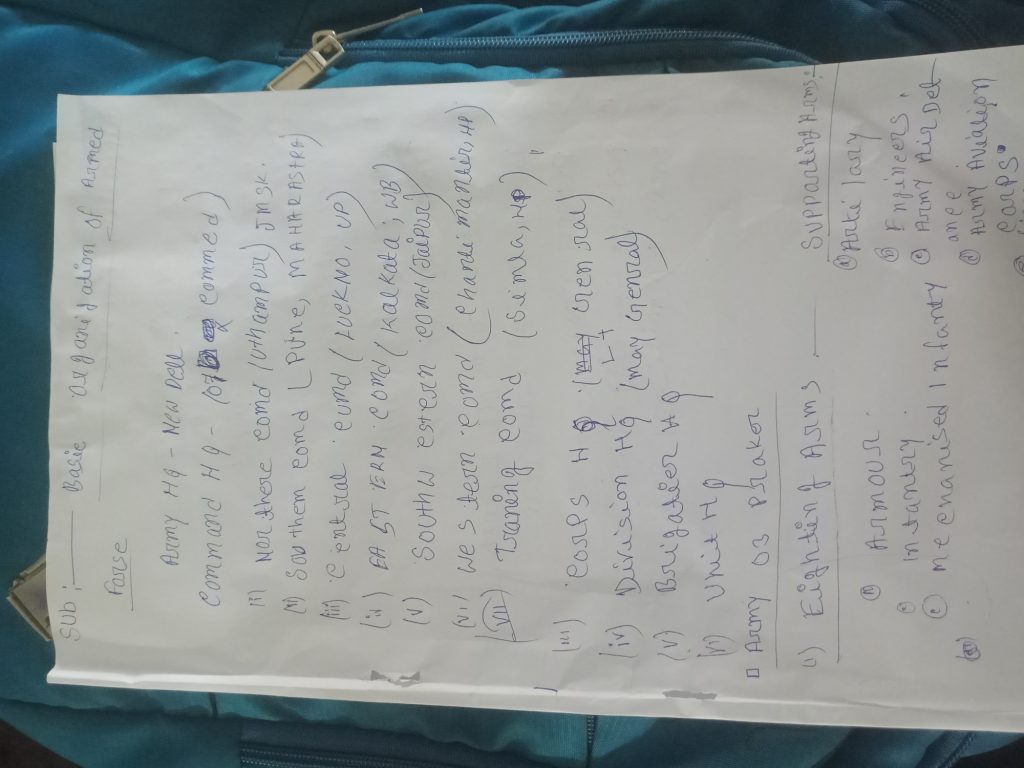 SUB:— Basic Organisation of Armed
Forse
Army Hq - New Dell
Command Hq - (07 commed)
(i) Northere comd (Uthampur) JMSK.
(ii) Southern comd (Pune, MAHARASTRA)
(iii) Central comd (LUCKNO, UP)
(iv) EASTERN comd (Kalkata, WB)
(v) South western comd (Jaipur)
(vi) Western comd (Chandimandir, HP)
(VII) Traning comd (Semla, HP)
(iii) Corps Hq (Lt General)
(iv) Division Hq (may General)
(v) Brigadeer Hq
(v) Unit Hq
□ Army 03
1) Fighting Arms :—
(A) Armour.
Infantry.
(C) mechanised Infanty
SUPPARting Arms:-
(A) Artilary
(B) Engineers.
(C) Army Air Def
ance
(D) Army Aviation
Carps.